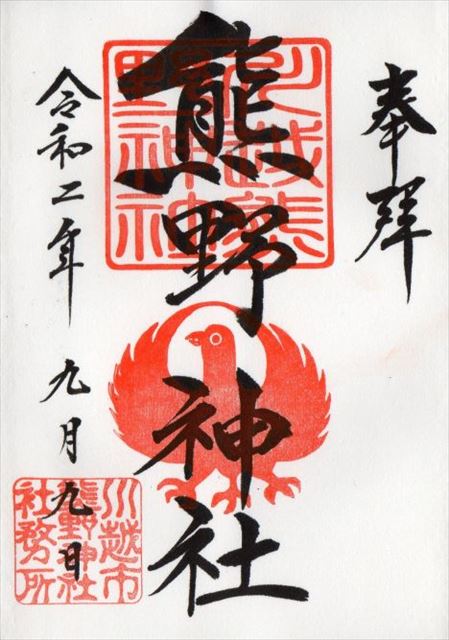 奉拝
熊野神社
川越熊野神社
令和二年 九月九日
川越市
熊野神社
社務所